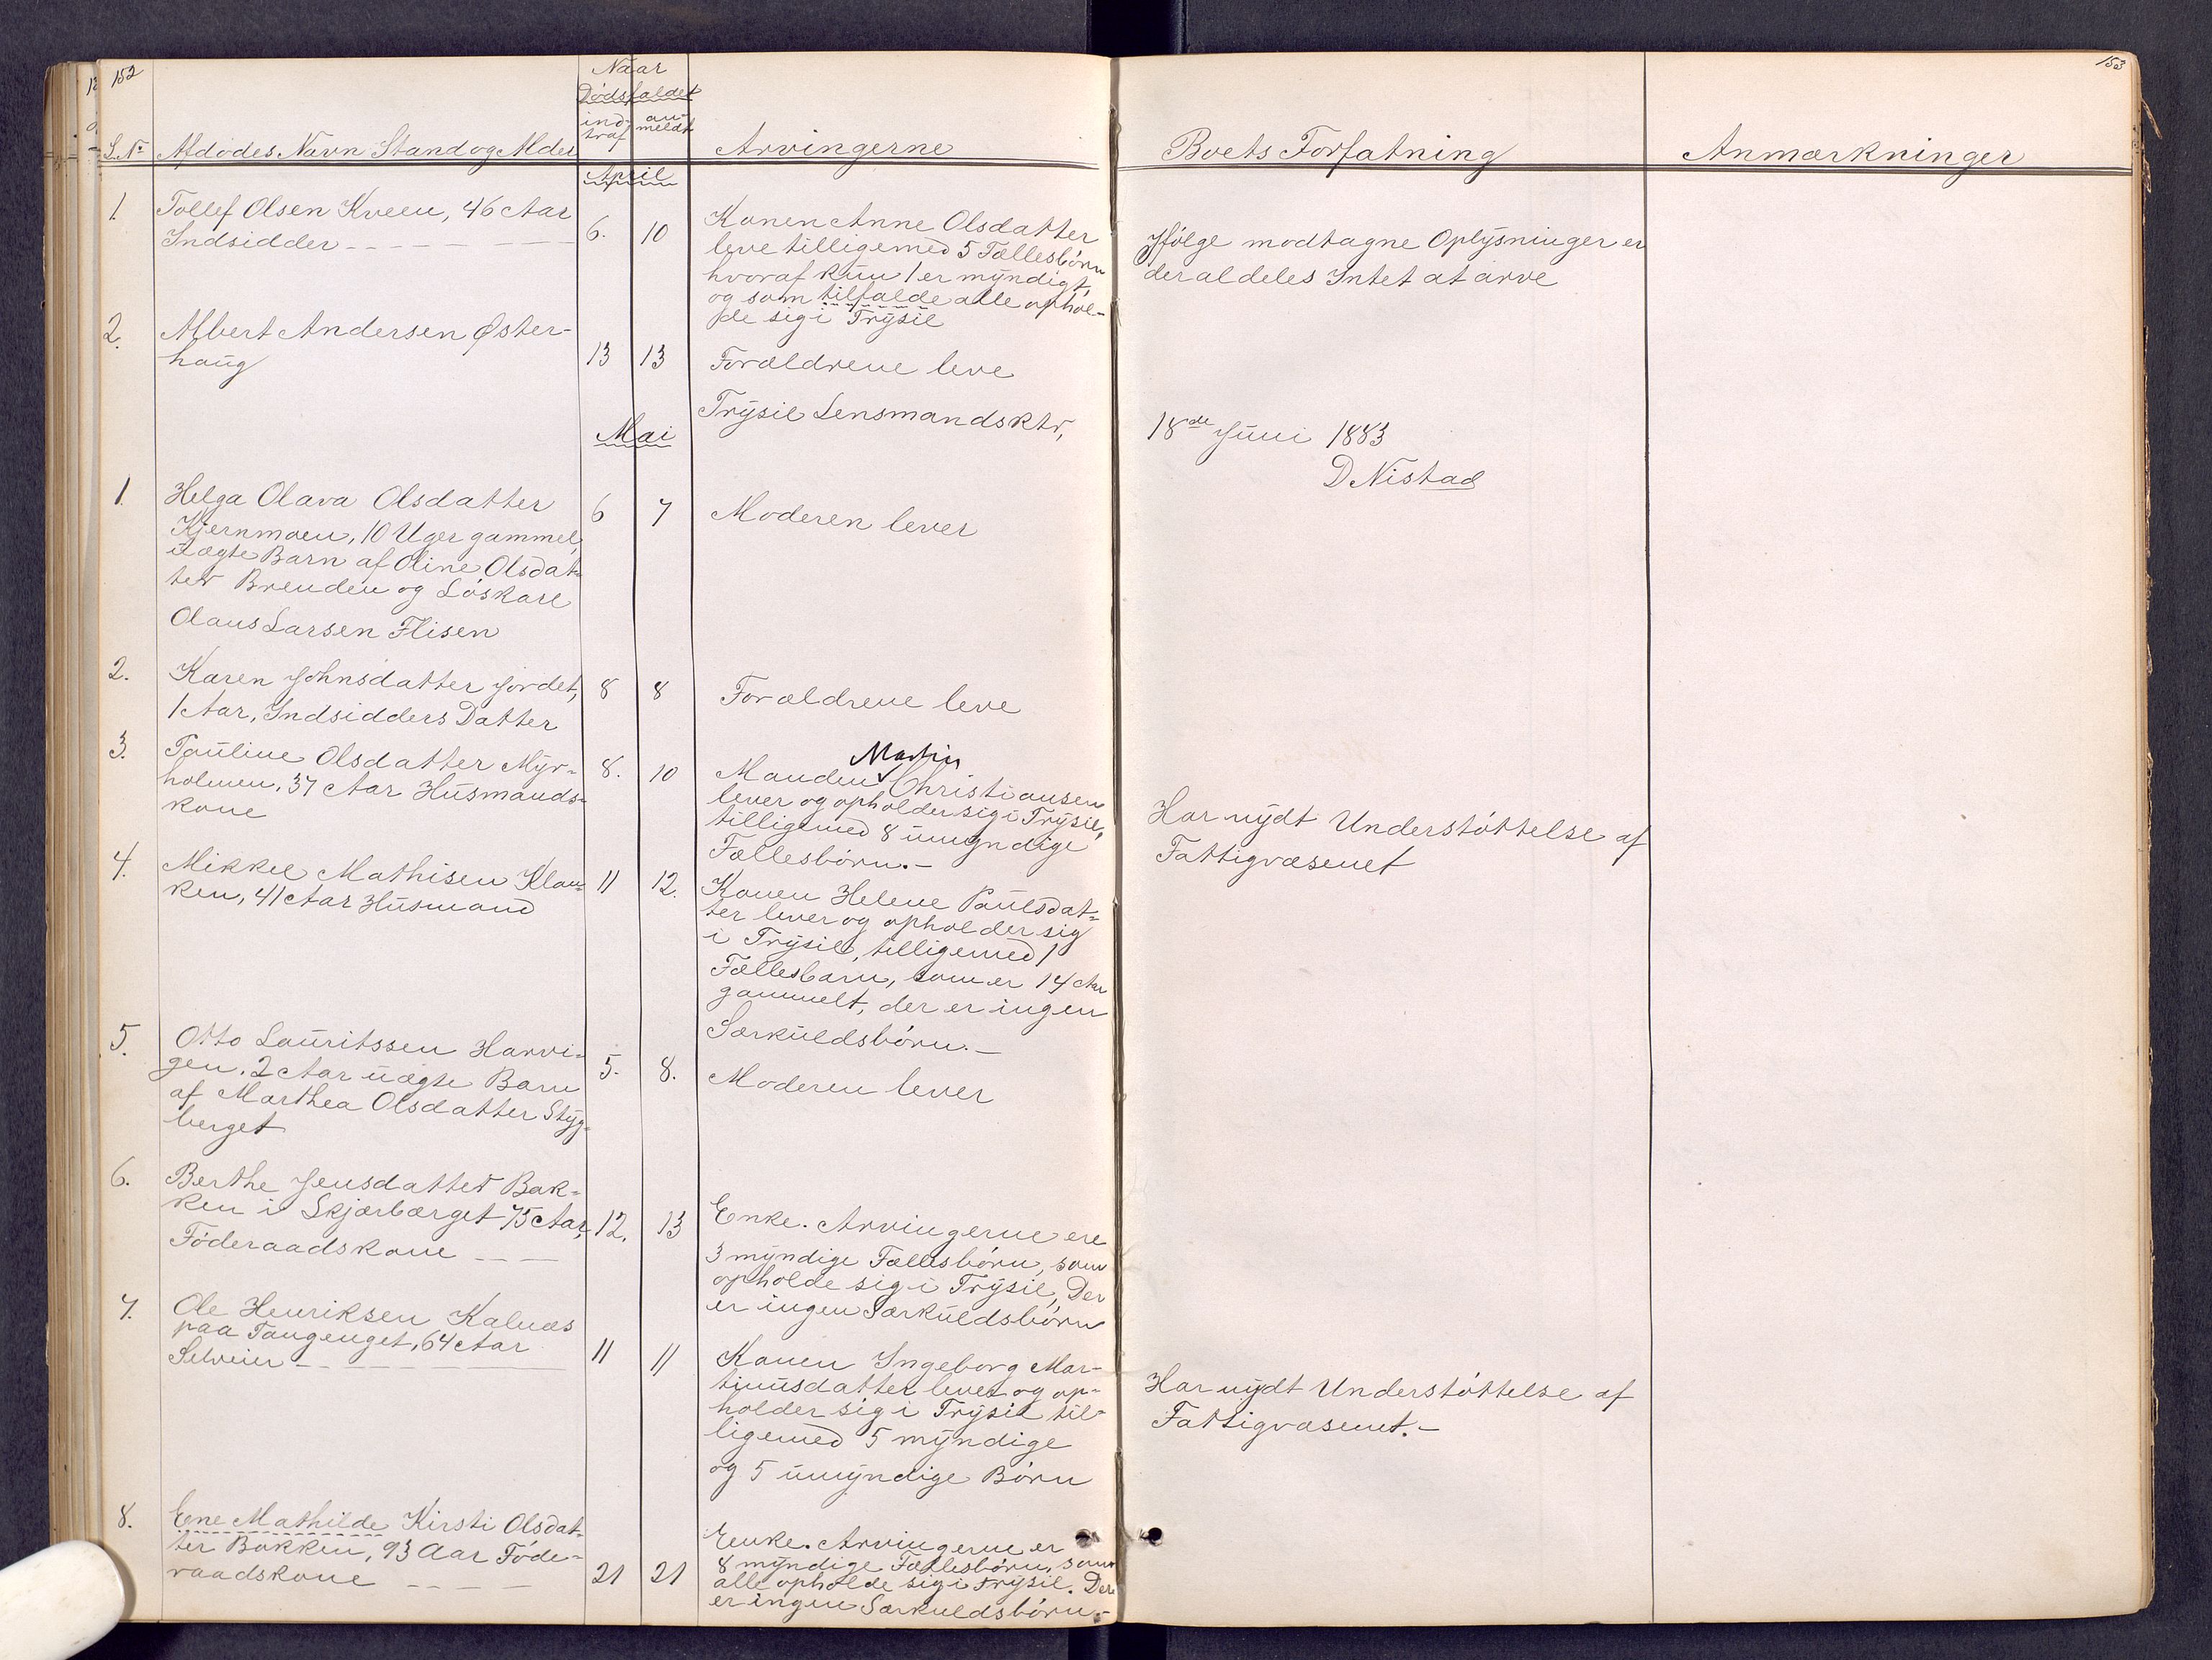 152
Naar
Dødsfaldet
ind- an-
traf meldt
L.No Afdødes Navn Stand og Alder
Arvingerne
April
1. Tollef Olsen Kveen, 46 Aar
Indsidder
6. 10
Konen Anne Olsdatter
leve tilligemed 5 Fællesbörn
hvoraf kun 1 er myndigt,
og som tilfalde alle ophol-
de sig i Trysil
2. Albert Andersen Øster-
haug
13 13 Forældrene leve
Trysil Lensmandsktr,
Mai
1. Helga Olava Olsdatter
Kjernmoen, 10 Uger gammel,
uægte Barn af Oline Olsdat-
ter Brenden og Löskarl
Olaus Larsen Flisen
6 7 Moderen lever
2. Karen Johnsdatter Jordet,
1 Aar, Indsidders Datter
8 8 Forældrene leve
3. Pauline Olsdatter Myr-
holmen, 37 Aar Husmands-
kone
8. 10
Martin
Manden Christiansen
lever og opholder sig i Trysil,
tilligemed 8 umyndige
Fællesbörn.-
4. Mikkel Mathisen Klan-
ken, 41 Aar Husmand
11 12.
Konen Helene Paulsdat-
ter lever og opholder sig
i Trysil, tilligemed 1
Fællesbarn, som er 14 Aar
gammelt, der er ingen
Særkuldsbörn.-
5. Otto Lauritssen Harvi-
gen. 2 Aar uægte Barn
af Marthea Olsdatter Styg-
berget
5. 8. Moderen lever
6. Berthe Jensdatter Bak-
ken i Skjærbærget 75 Aar,
Föderaadskone
12. 13
Enke. Arvingerne ere
3 myndige Fællesbörn, som
opholde sig i Trysil, Der
er ingen Særkuldsbörn
7. Ole Henriksen Kalnæs
paa Tangenget, 64 Aar
Selveier
11 11
Konen Ingeborg Mar-
tinusdatter lever og op-
holder sig i Trysil til-
ligemed 5 myndige
og 5 umyndige Börn
8. Ene Mathilde Kirsti Olsdat-
ter Bakken, 93 Aar Föde-
raadskone
21 21
Enke. Arvingerne er
8 myndige Fællesbörn, som
alle opholde sig i Trysil. Der
er ingen Særkuldsbörn.-
153
Boets Forfatning
Anmærkninger
Ifölge modtagne Oplysninger er
der aldeles Intet at arve
18de Juni 1883
D Nistad
Har nydt Understöttelse af
Fattigvæsenet
Har nydt Understöttelse af
Fattigvæsenet.-